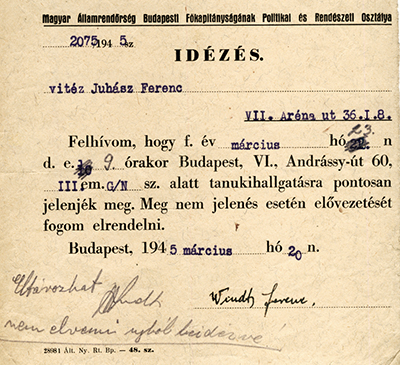 Magyar Államrendőrség Budapesti Főkapitányságának Politikai és Rendészeti Osztálya
2075 1945 sz
IDÉZÉS.
vitéz Juhász Ferenc
VII. Aréna ut 36.I.8.
Felhívom, hogy f. év március hó 23. n
d. e. 9 órakor Budapest, VI., Andrássy-út 60,
III em. G/N sz. alatt tanukihallgatásra pontosan
jelenjék meg. Meg nem jelenés esetén elővezetését
fogom elrendelni.
Budapest, 1945 március hó 20 n.
Eltávozhat
Wendt Ferenc.
nem
28981 Ált. Ny. Rt. Bp. — 48. sz.